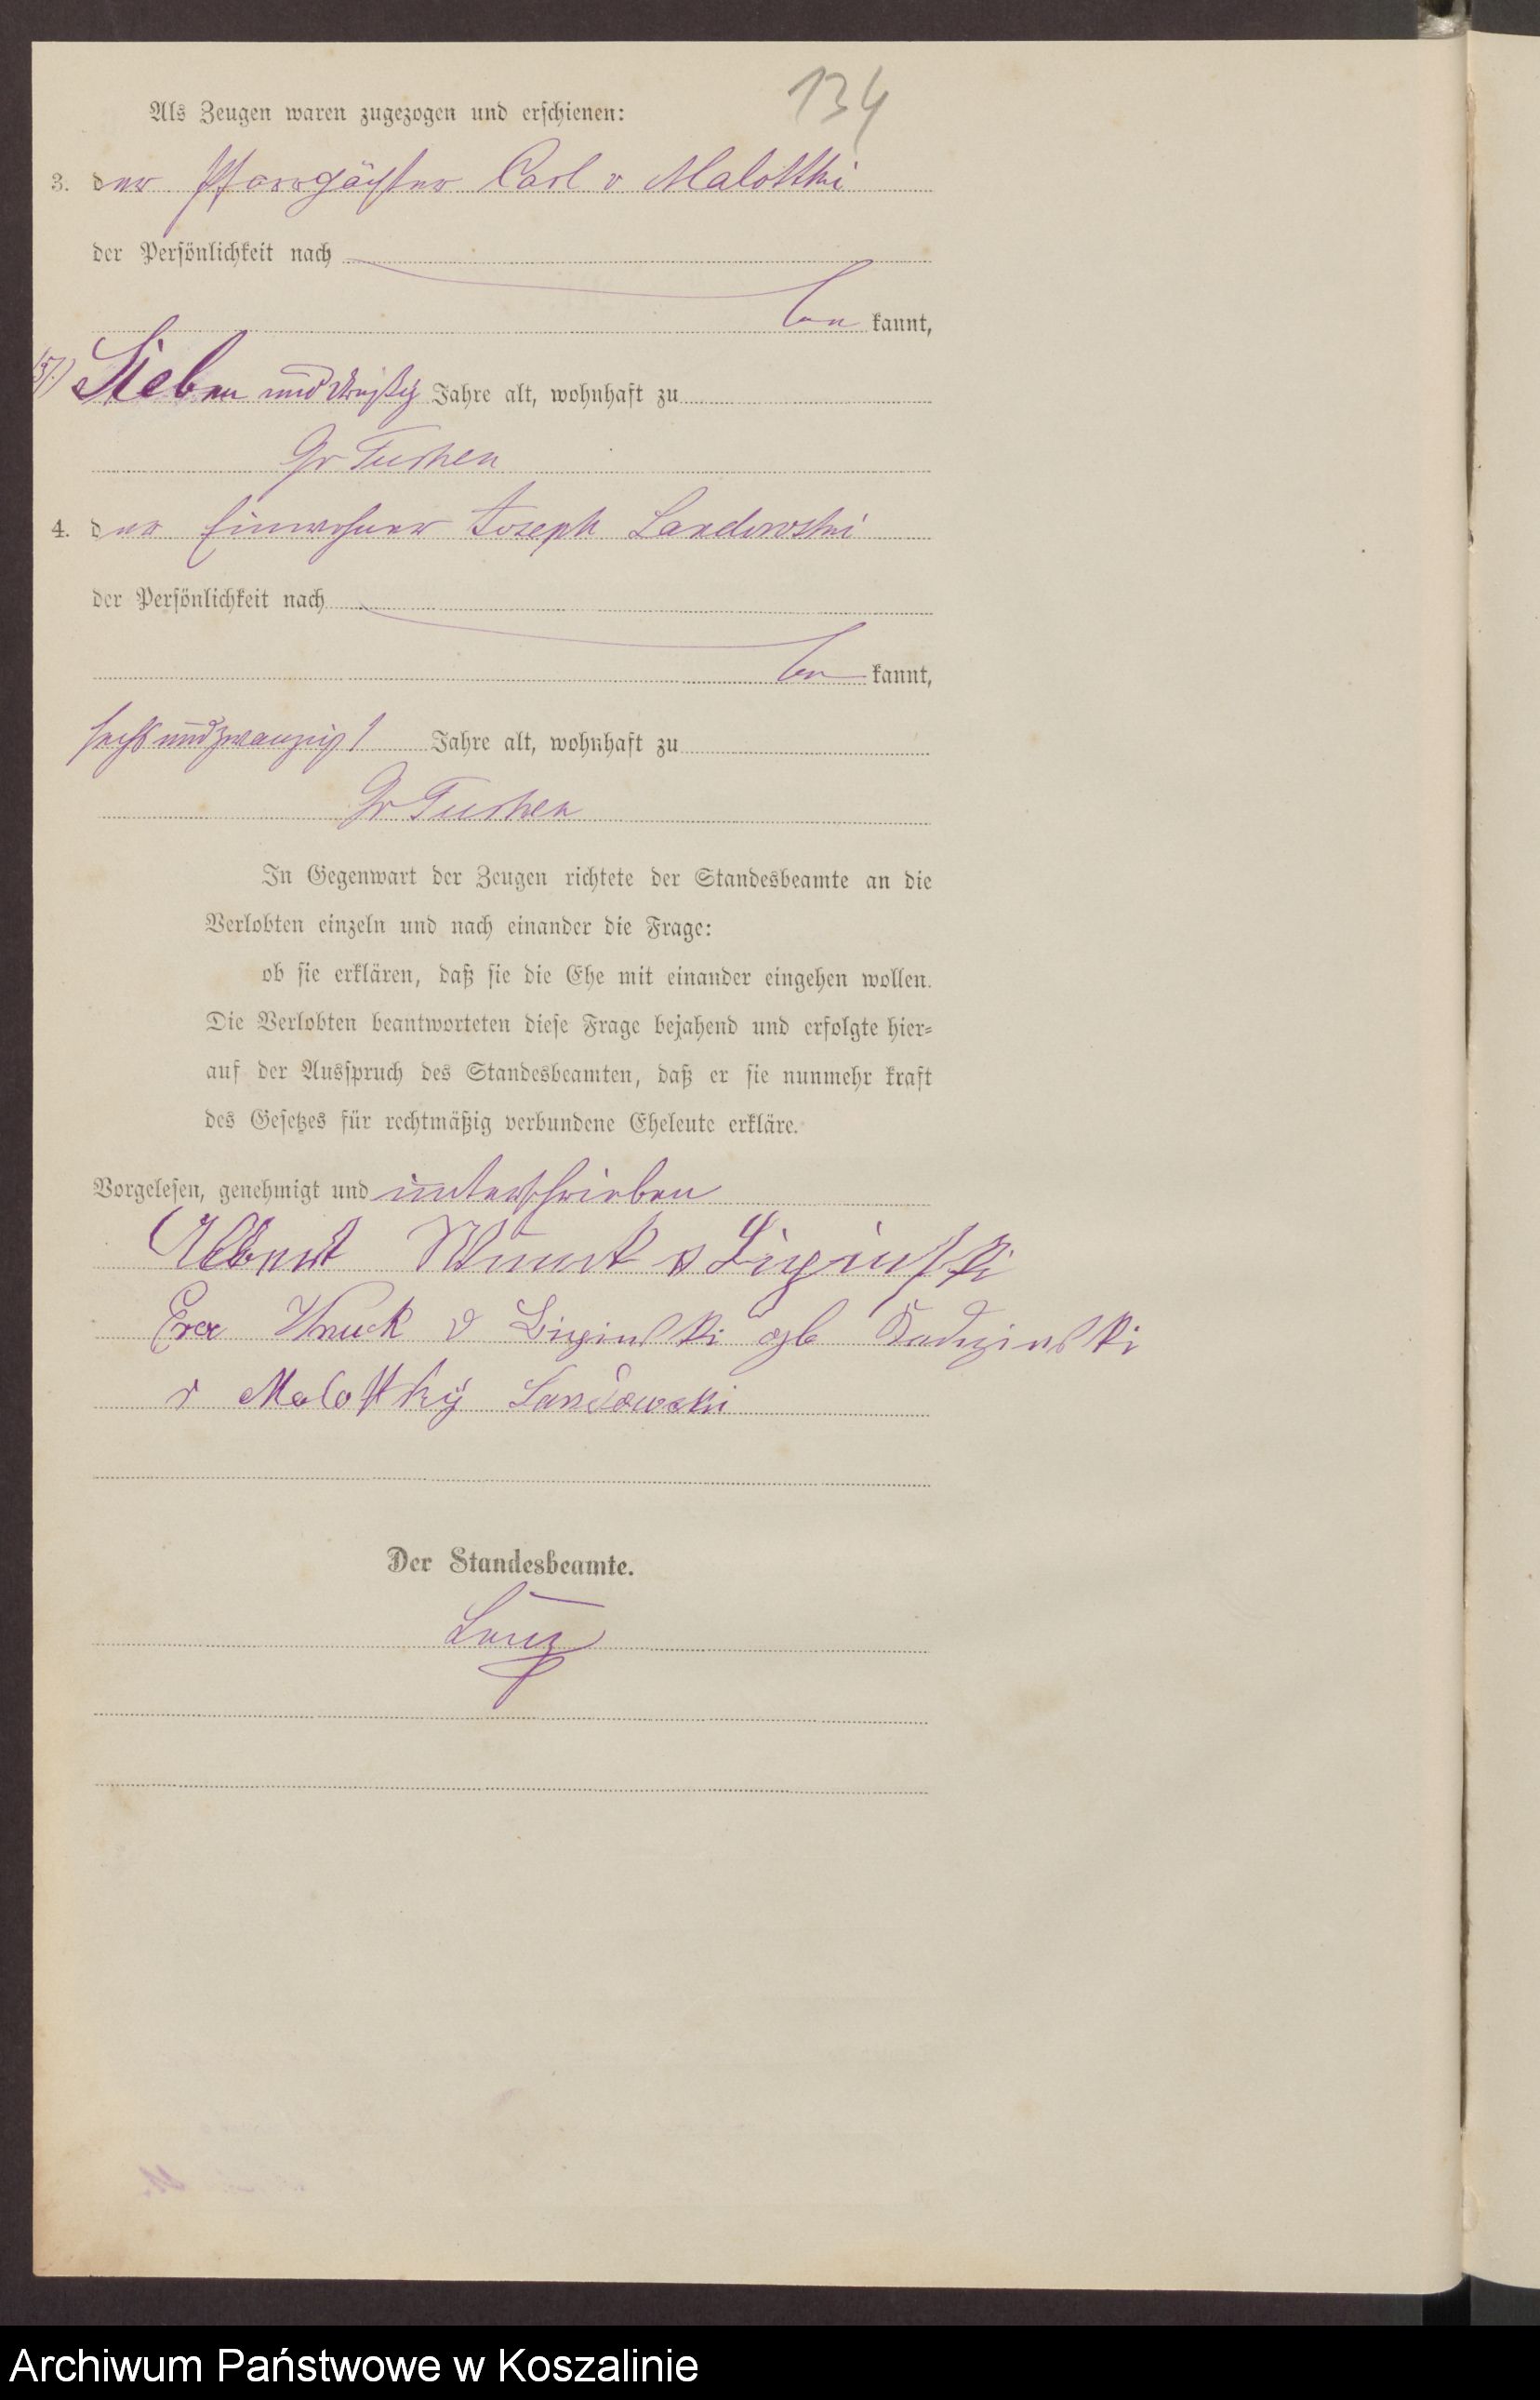 134
Als Zeugen waren zugezogen und erschienen:
3. der Pfarrpächter Carl v Malottki
der Persönlichkeit nach
be kannt,
(37) Sieben und dreißig Jahre alt, wohnhaft zu
Gr Tuchen
4. der Einwohner Joseph Landowski
der Persönlichkeit nach
be kannt,
sechs und zwanzig Jahre alt, wohnhaft zu
Gr Tuchen
In Gegenwart der Zeugen richtete der Standesbeamte an die
Verlobten einzeln und nach einander die Frage:
ob sie erklären, daß sie die Ehe mit einander eingehen wollen.
Die Verlobten beantworteten diese Frage bejahend und erfolgte hier=
auf der Ausspruch des Standesbeamten, daß er sie nunmehr kraft
des Gesetzes für rechtmäßig verbundene Eheleute erkläre.
Vorgelesen, genehmigt und unterschrieben
Albert Wnuck v
Eva Wnuck v
v Malottky Landowski
Der Standesbeamte.
Archiwum Państwowe w Koszalinie